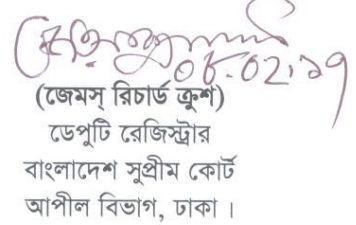 ০৪.০২.১৭
(জেমস্ রিচার্ড ক্রুশ)
ডেপুটি রেজিস্ট্রার
বাংলাদেশ সুপ্রীম কোর্ট
আপীল বিভাগ, ঢাকা ।